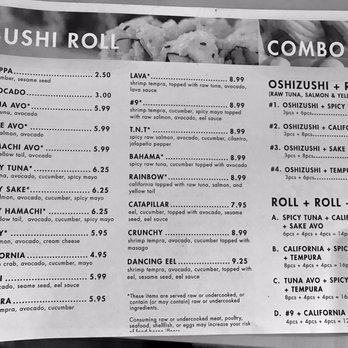 SUSHI ROLL
PPA 2.50
cucumber, sesame seed
OCADO 3.00
NA AVO* 5.99
tuna, avocado
KE AVO* 5.99
salmon, avocado
MACHI AVO* 5.99
yellow tail, avocado
CY TUNA* 6.25
tuna, cucumber, spicy mayo
CY SAKE* 6.25
salmon, cucumber, spicy mayo
Y HAMACHI* 6.25
yellow tail, avocado, cucumber, spicy mayo
Y* 5.95
mon, avocado, cream cheese
FORNIA 4.95
crab, avocado, cucumber, mayo
I 5.95
cado, cucumber,
sesame seed, eel sauce
URA 5.95
empra, avocado, cucumber
LAVA* 8.99
shrimp tempra, topped with raw tuna, avocado,
lava sauce
#9* 8.99
shrimp tempra, cucumber, spicy mayo topped
with raw salmon, avocado, eel sauce
T.N.T* 8.99
spicy raw salmon, avocado, cucumber, cilantro,
jalapeño pepper
BAHAMA* 8.99
spicy raw tuna, cucumber topped with avocado
RAINBOW* 8.99
california topped with raw tuna, salmon, and
yellow tail
CATAPILLAR 7.95
eel, cucumber, topped with avocado, sesame
seed, eel sauce
CRUNCHY 8.99
shrimp tempra, avocado, cucumber topped with
masago
DANCING EEL 9.25
shrimp tempra, avocado, cucumber, topped with
eel, avocado, masago, eel sauce
*These items are served raw or undercooked, or
contain (or may contain) raw or undercooked
ingredients.
Consuming raw or undercooked meat, poultry,
seafood, shellfish, or eggs may increase your risk
COMBO
OSHIZUSHI + R
(RAW TUNA, SALMON & YEL
#1. OSHIZUSHI + SPICY
3pcs + 6pcs
#2. OSHIZUSHI + CALIF
3pcs + 8pcs
#3. OSHIZUSHI + SAKE
3pcs + 8pcs
#4. OSHIZUSHI + TEMPU
3pcs + 4pcs
ROLL + ROLL +
A. SPICY TUNA + CALIF
+ SAKE AVO
6pcs + 4pcs + 4pcs = 14p
B. CALIFORNIA + SPICY
+ TEMPURA
8pcs + 4pcs + 4pcs = 16p
C. TUNA AVO + SPICY
+ TEMPURA
8pcs + 4pcs + 4pcs = 16p
D. #9 + CALIFORNIA
4pcs + 4pcs + 4pcs = 12